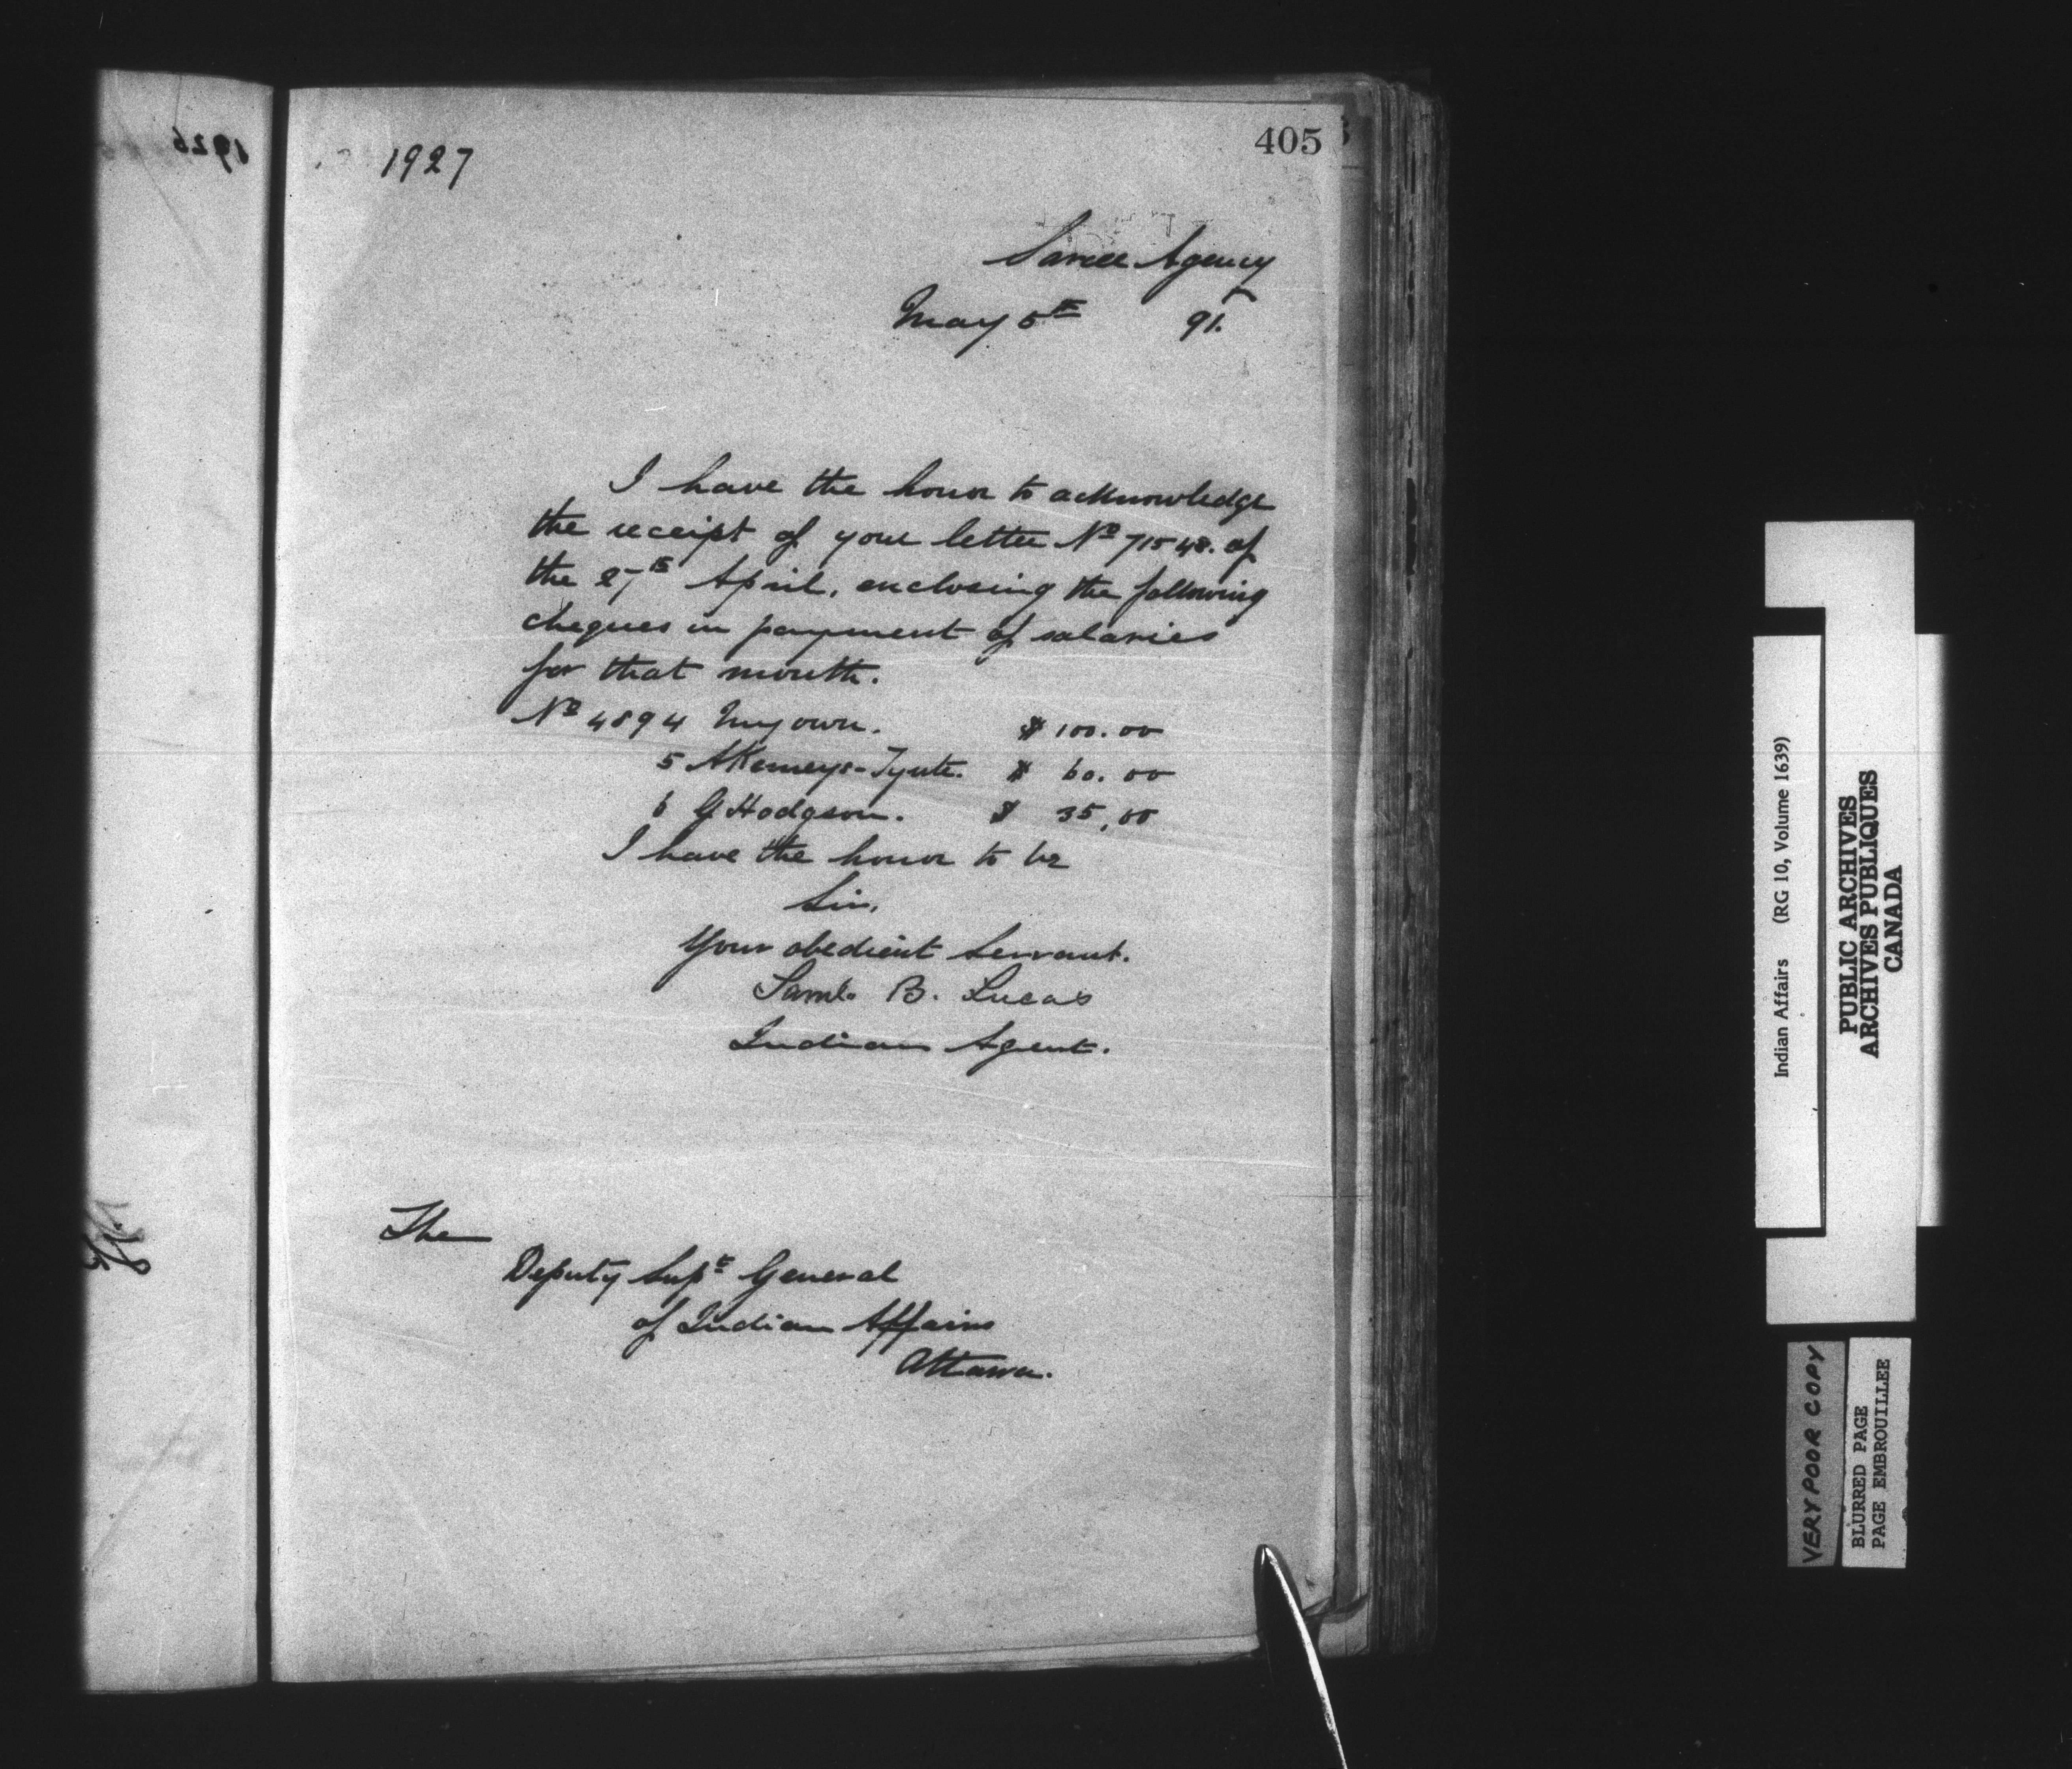 1926
1927
405
Sarcee Agency
May 5th 91.
I have the honor to acknowledge
the receipt of your letter No 71548. of
the 27th April, enclosing the following
cheques in payment of salaries
for that month.
No 4894 My own. $ 100.00
5 A Kemeys-Tynte. $ 60.00
6 G Hodgson. $ 35.00
I have the honor to be
Sir,
Your obedient Servant.
Saml. B. Lucas
Indian Agent.
The
Deputy Supt General
of Indian Affairs
Ottawa.
Indian Affairs (RG 10, Volume 1639)
PUBLIC ARCHIVES
ARCHIVES PUBLIQUES
CANADA
VERY POOR COPY
BLURRED PAGE
PAGE EMBROUILLEE